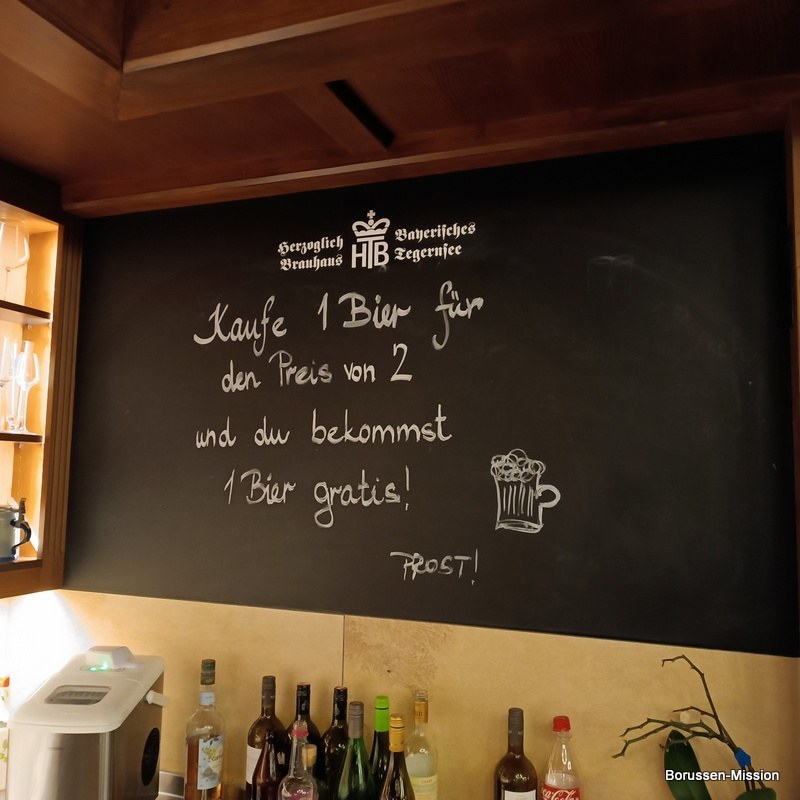 Herzoglich Bayerisches
Brauhaus HTB Tegernsee
Kaufe 1 Bier für
den Preis von 2
und du bekommst
1 Bier gratis!
PROST!
Borussen-Mission